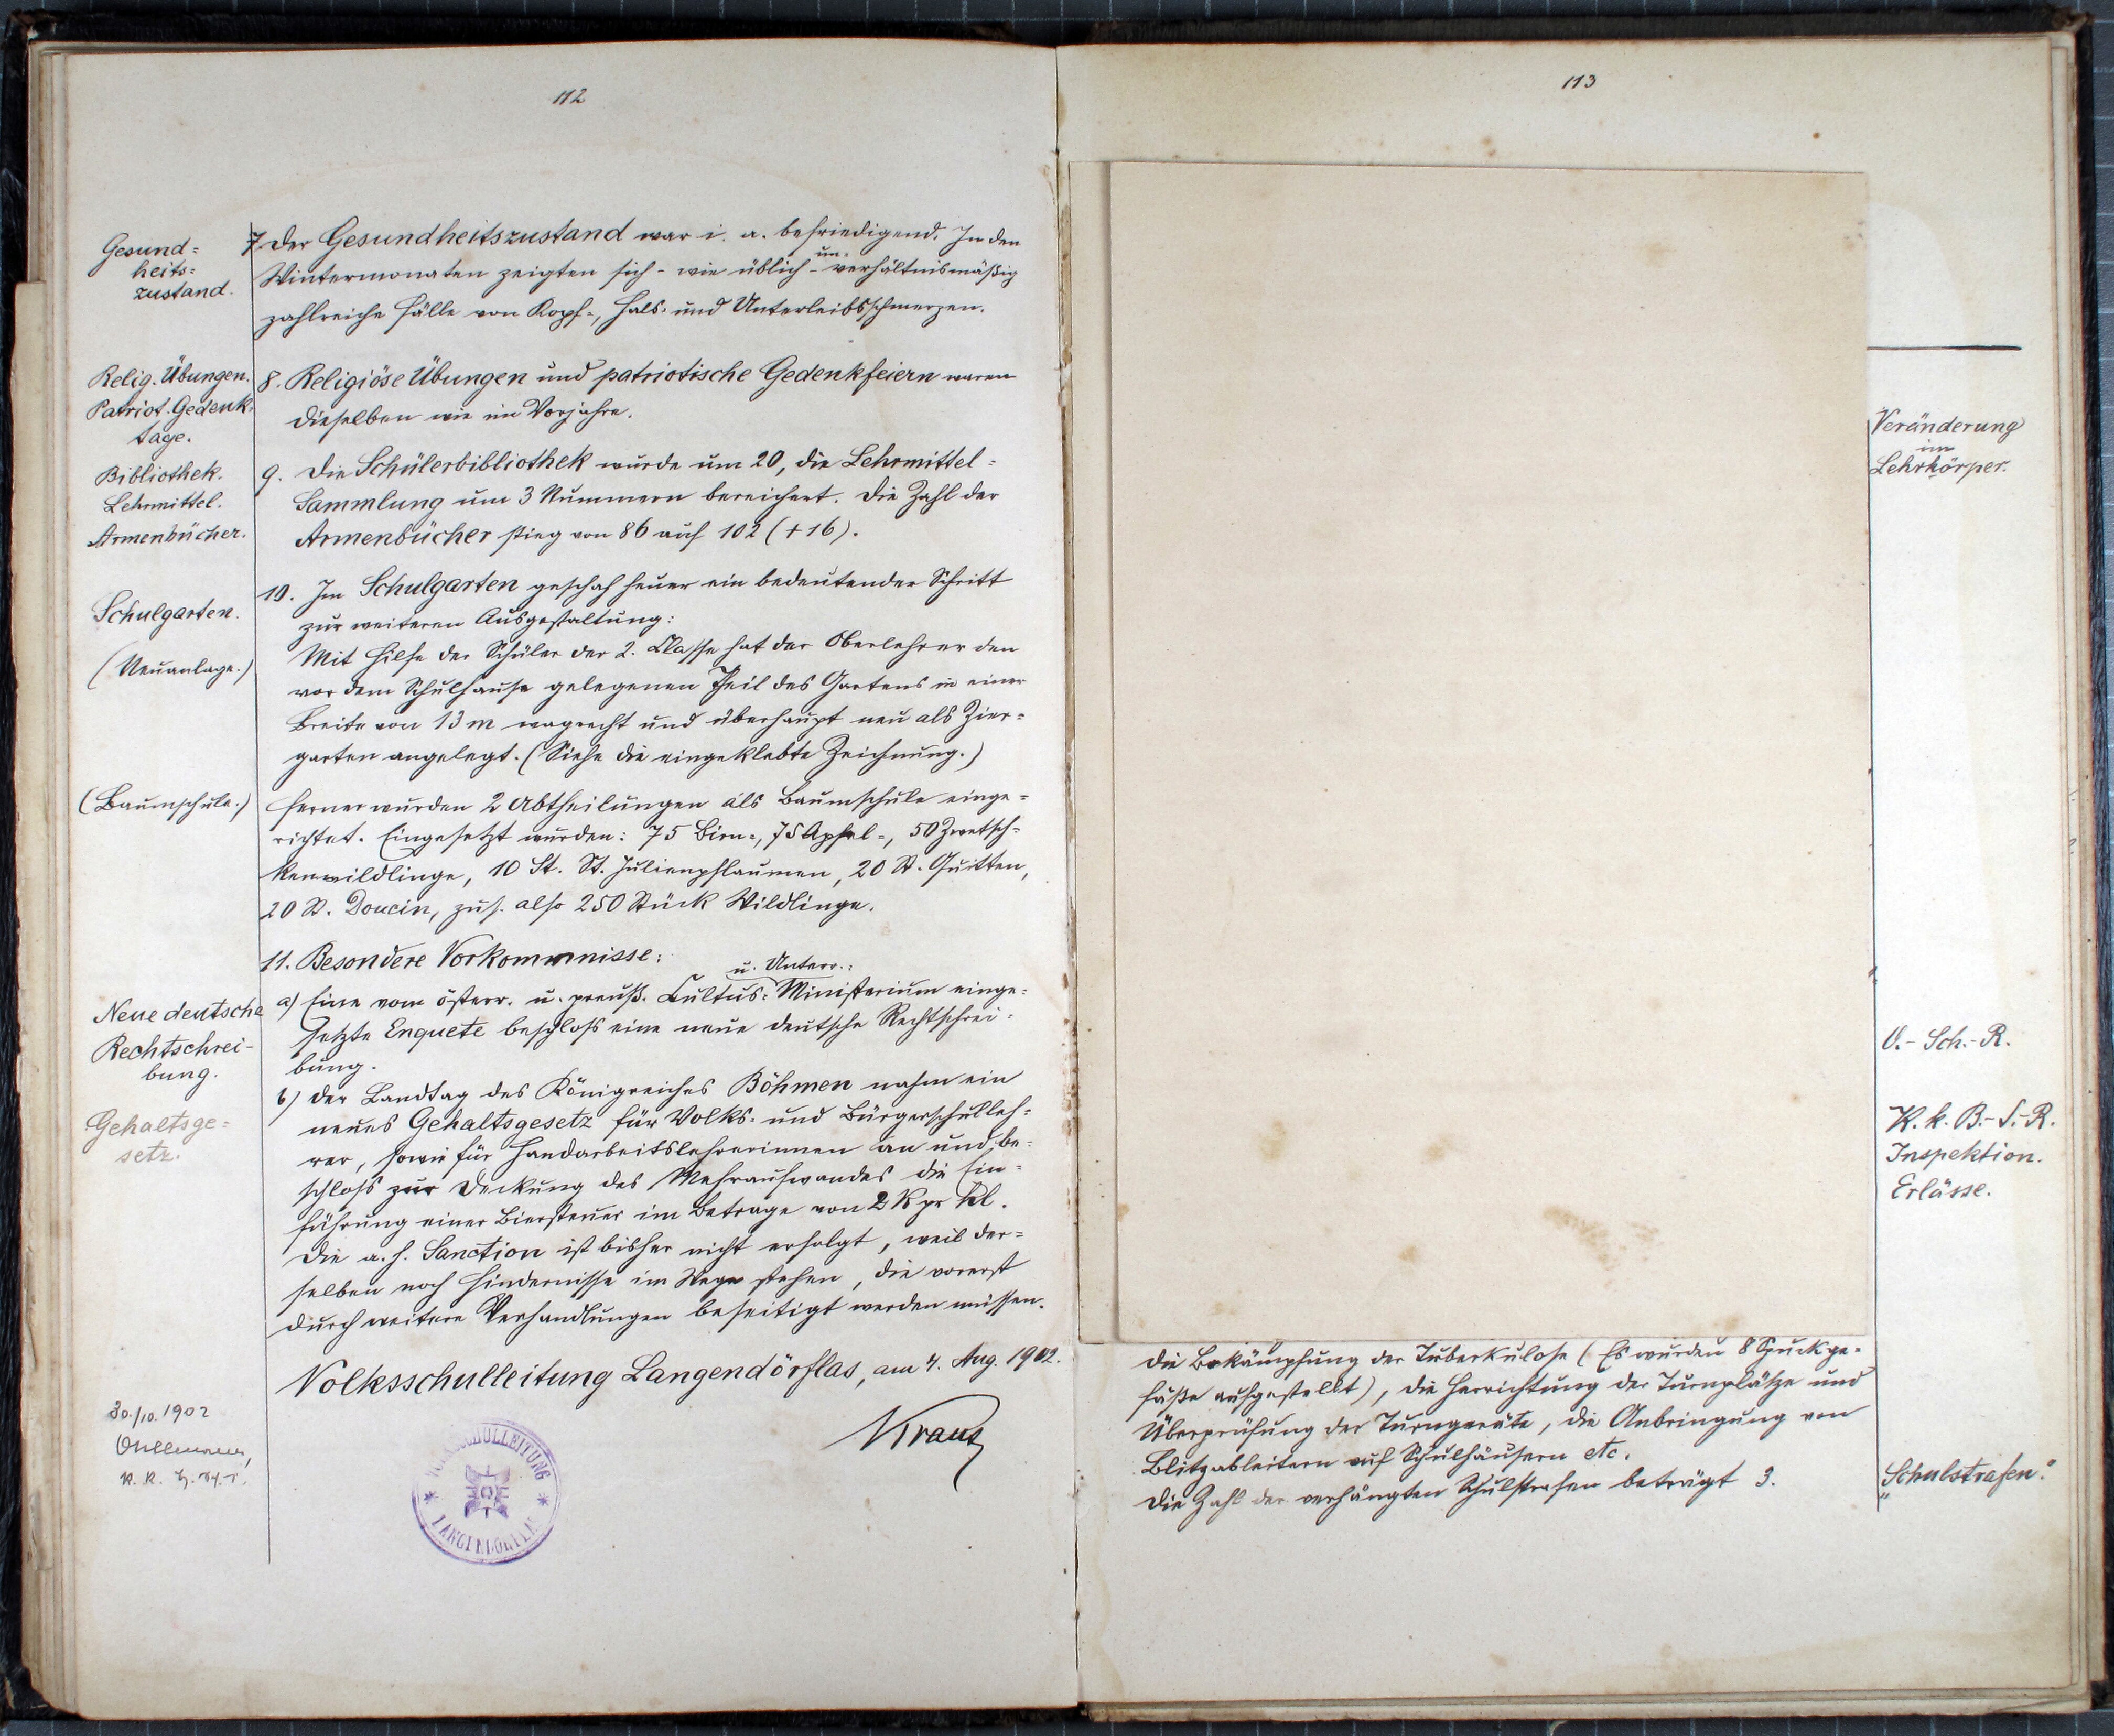 112
Gesund=
heits=
zustand.
7. Der Gesundheitszustand war i. a. befriedigend. In den
Wintermonaten zeigten sich - wie üblich - un- verhältnismäßig
zahlreiche Fälle von Kopf-, Hals- und Unterleibsschmerzen.
Relig. Übungen.
Patriot. Gedenk-
tage.
8. Religiöse Übungen und patriotische Gedenkfeiern waren
dieselben wie im Vorjahre.
Bibliothek.
Lehrmittel.
Armenbücher.
9. Die Schülerbibliothek wurde um 20, die Lehrmittel=
Sammlung um 3 Nummern bereichert. Die Zahl der
Armenbücher stieg von 86 auf 102 (+16).
Schulgarten.
(Neuanlage.)
10. Im Schulgarten geschah heuer ein bedeutender Schritt
zur weiteren Ausgestaltung:
Mit Hilfe der Schüler der 2. Classe hat der Oberlehrer den
vor dem Schulhause gelegenen Theil des Gartens in einer
Breite von 13 m wagrecht und überhaupt neu als Zier=
garten angelegt. (Siehe die eingeklebte Zeichnung.)
(Baumschule.)
Ferner wurden 2 Abtheilungen als Baumschule einge=
richtet. Eingesetzt wurden: 75 Birn-, 75 Apfel-, 50 Zwetsch=
kenwildlinge, 10 St. St. Julienpflaumen, 20 St. Quitten,
20 St. Doucin, zus. also 250 Stück Wildlinge.
11. Besondere Vorkommnisse:
Neue deutsche
Rechtschrei-
bung.
u. Unterr.=
a) Eine vom österr. u. preuß. Cultus= Ministerium einge=
setzte Enquete beschloss eine neue deutsche Rechtschrei=
bung.
Gehaltsge=
setz.
b) Der Landtag des Königreiches Böhmen nahm ein
neues Gehaltsgesetz für Volks- und Bürgerschulleh=
rer, sowie für Handarbeitslehrerinnen an und be=
schloss zur Deckung des Mehraufwandes die Ein=
führung einer Biersteuer im Betrage von 2 K pr hl.
Die a. h. Sanction ist bisher nicht erfolgt, weil der=
selben noch Hindernisse im Wege stehen, die vorerst
durch weitere Verhandlungen beseitigt werden müssen.
Volksschulleitung Langendörflas, am 4. Aug. 1902.
Kraus
30./10. 1902
VOLKSSCHULLEITUNG
LANGENDÖRFLAS
113
Veränderung
im
Lehrkörper.
O.- Sch.- R.
K. k. B.- S.- R.
Inspektion.
Erlässe.
die Bekämpfung der Tuberkulose (Es wurden 8 Spuckge=
fäße aufgestellt), die Herrichtung der Turnplätze und
Überprüfung der Turngeräte, die Anbringung von
Blitzableitern auf Schulhäusern etc.
Die Zahl der verhängten Schulstrafen beträgt 3.
„Schulstrafen."